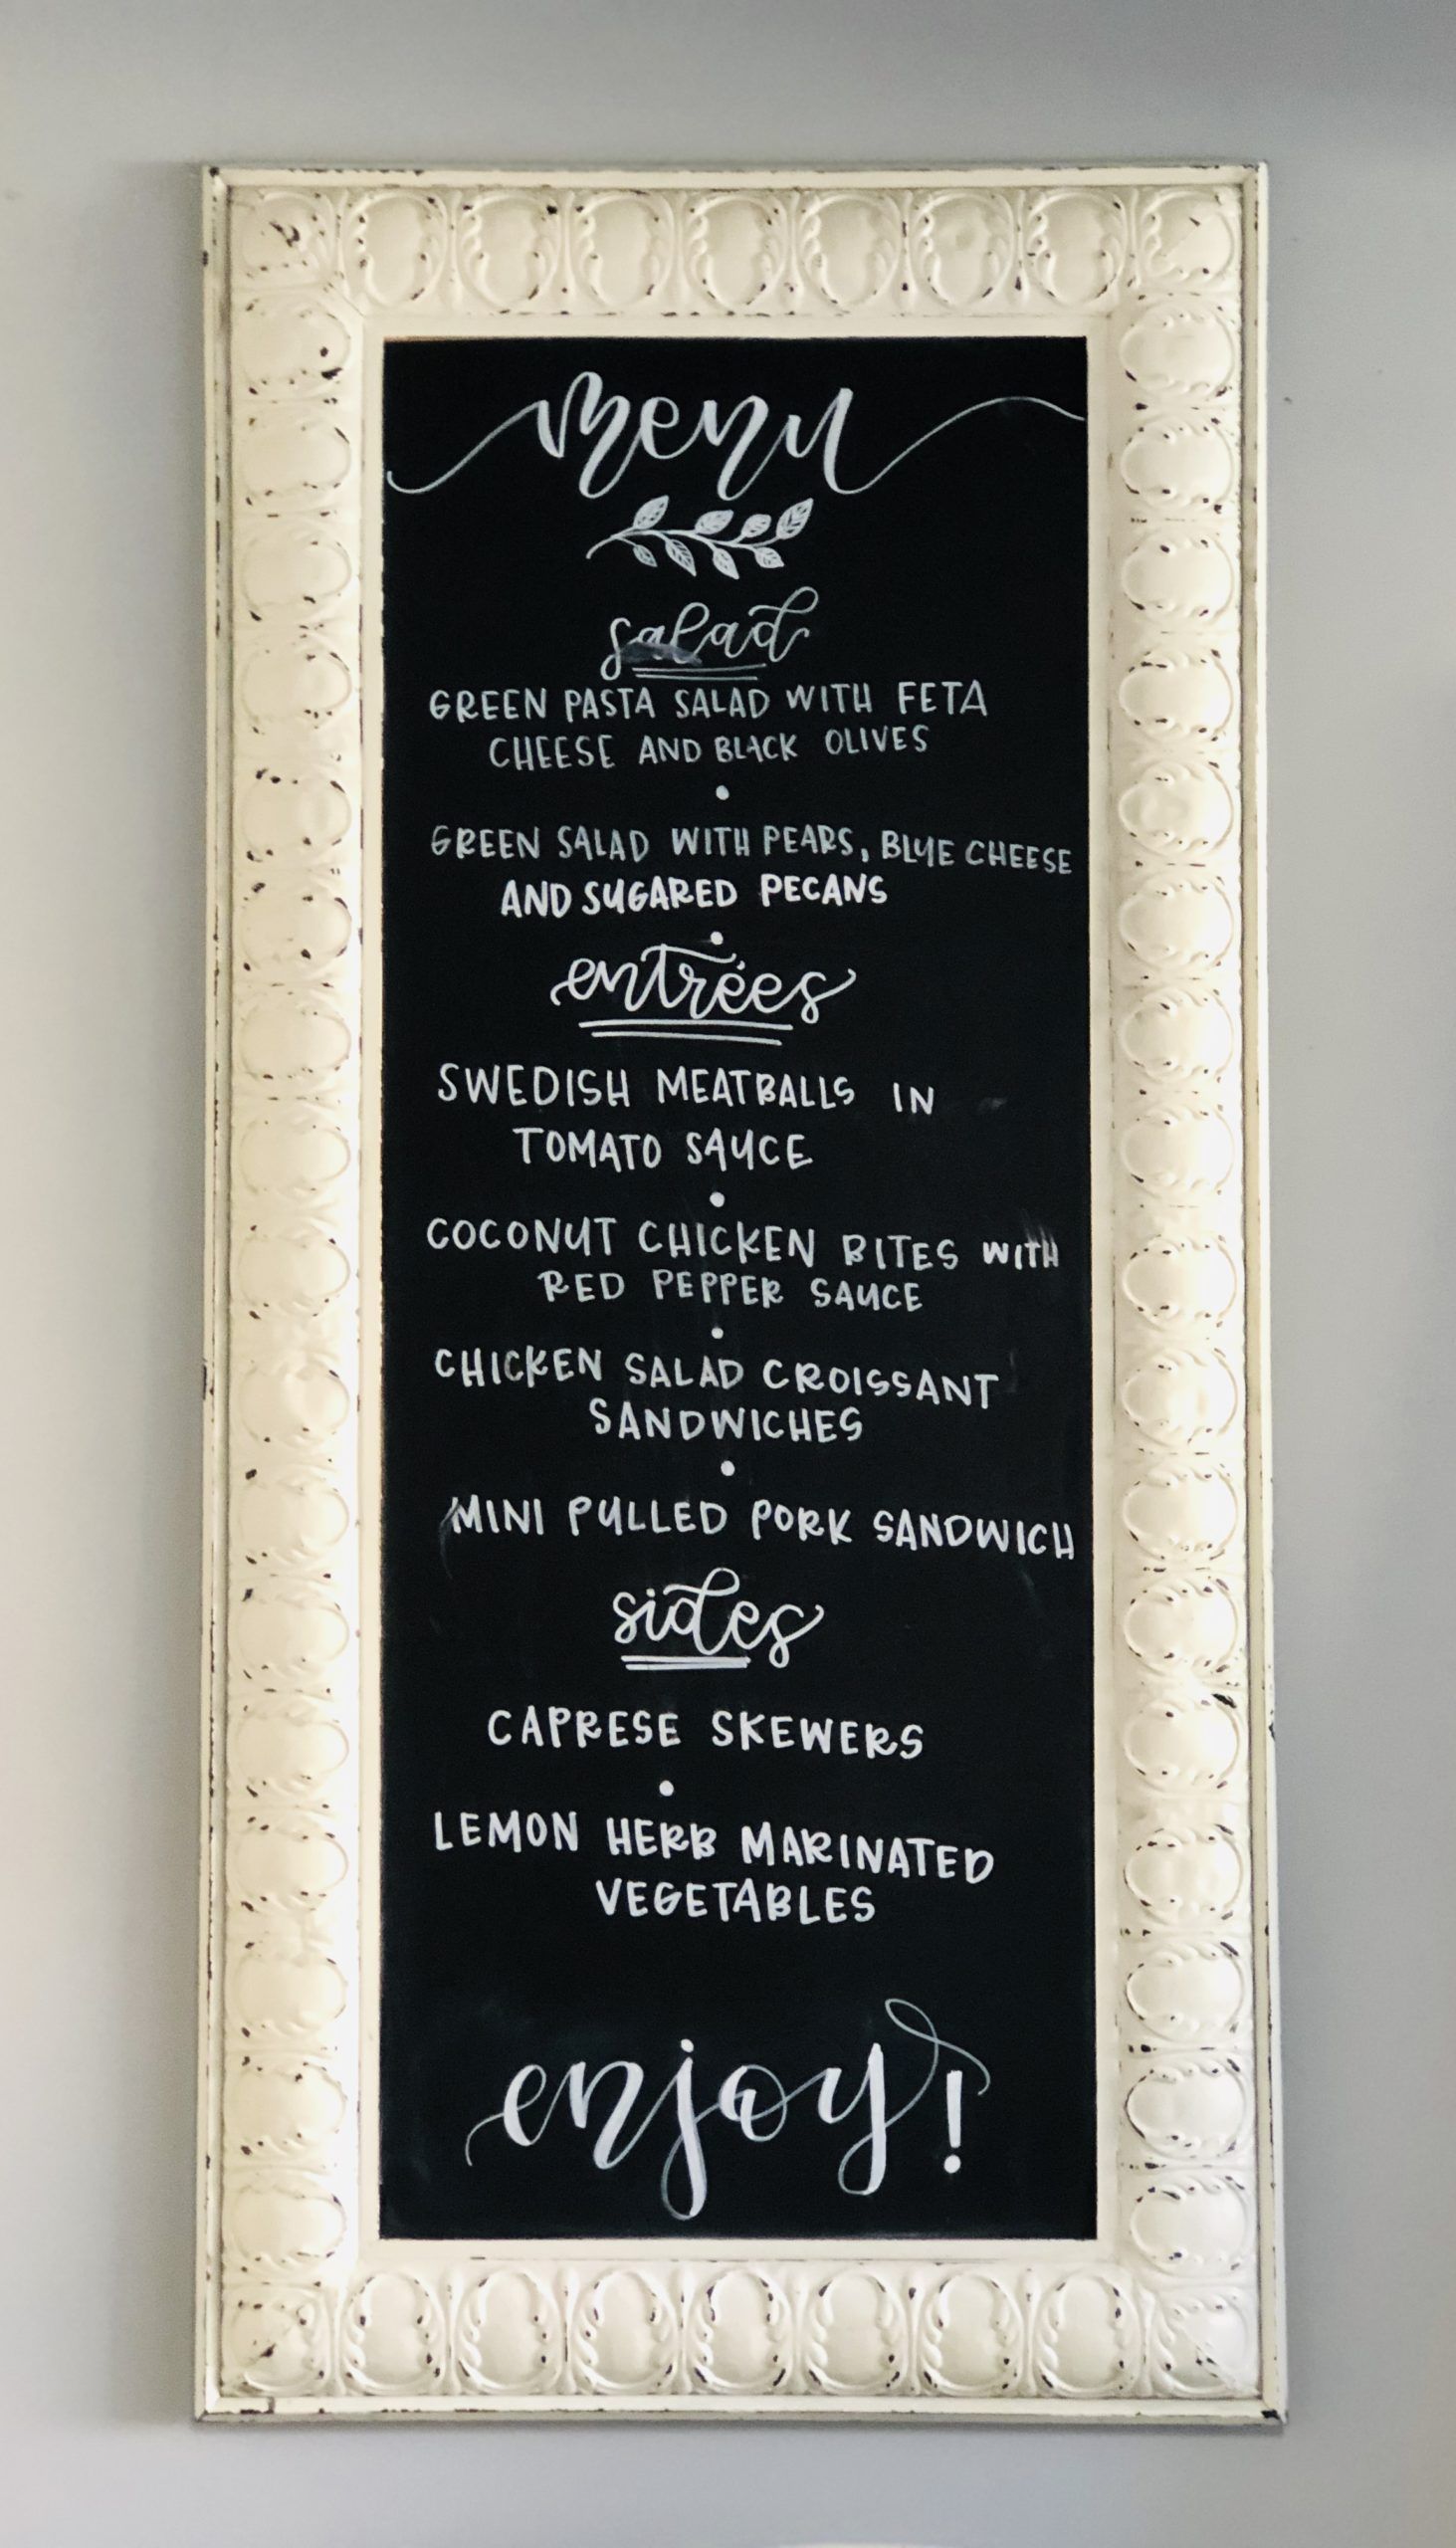 menu
salad
GREEN PASTA SALAD WITH FETA
CHEESE AND BLACK OLIVES
•
GREEN SALAD WITH PEARS, BLUE CHEESE
AND SUGARED PECANS
•
entrées
SWEDISH MEATBALLS IN
TOMATO SAUCE
•
COCONUT CHICKEN BITES WITH
RED PEPPER SAUCE
•
CHICKEN SALAD CROISSANT
SANDWICHES
•
MINI PULLED PORK SANDWICH
sides
CAPRESE SKEWERS
•
LEMON HERB MARINATED
VEGETABLES
enjoy!